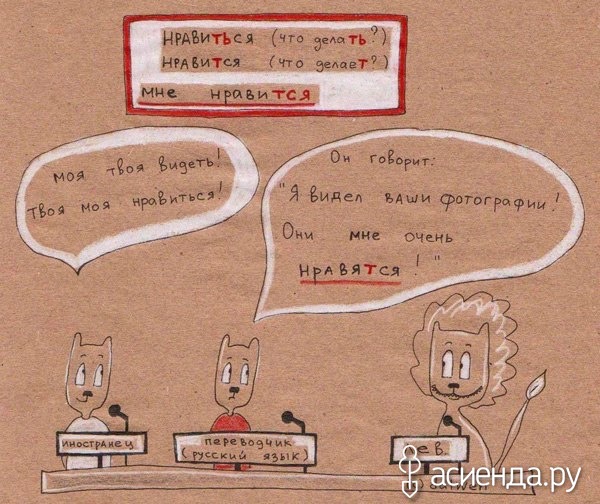 НРАВИТЬСЯ (что делать?)
НРАВИТСЯ (что делает?)
мне нравится
моя твоя видеть!
твоя моя нравиться!
Он говорит:
"Я видел ваши фотографии!
Они мне очень
нравятся!"
иностранец
переводчик
(русский язык)
асиенда.ру